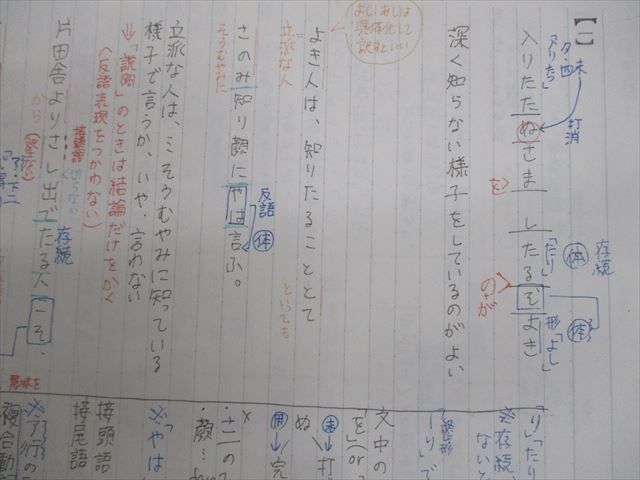 【一】
入りたたぬさま したるぞよき
「入りたつ」
タ・四・未
打消
を
存続
体
「たり」
のが
形「よし」
体
深く知らない様子をしているのがよい
よしあしは具体化して訳出したい!
よき人は、知りたることとて
立派な人
といっても
さのみ知り顔にやは言ふ。
そうむやみに
反語
体
立派な人は、そうむやみに知っている
様子で言うか、いや、言わない
⇓「説明」のときは結論だけをかく
(反語表現をつかわない)
片田舎よりさし出でたる人こそ、
から
接頭語
切らない
存続
「り」「たり
※存続、
ないと
終止形
「り」で
文中の
「を」(or
未→打
ぬ
用→完
・さ…の
・顔…
※「やは
接頭語
接尾語
意味を
※ア行の
複合動